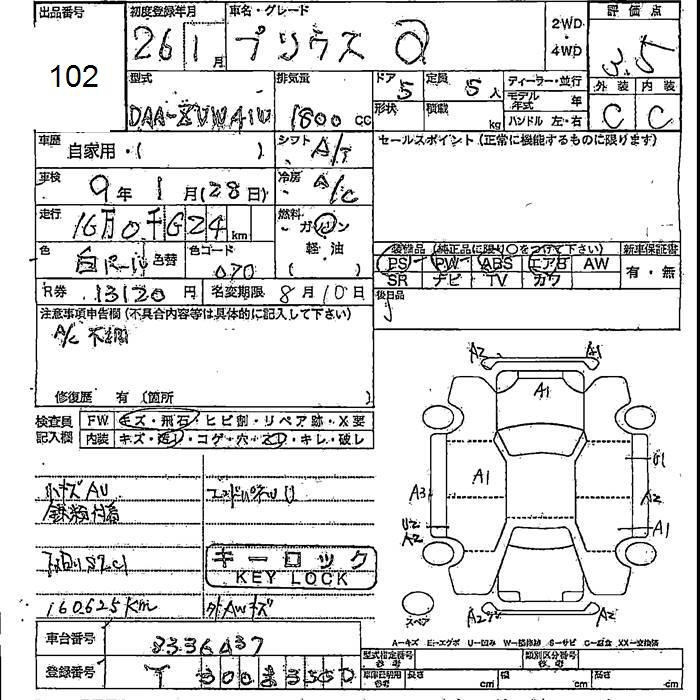 出品番号
102
初度登録年月
26 1 月
車名・グレード
プリウス
2WD
4WD
評価点
3.5
外装 内装
C C
型式
排気量
1800 CC
ドア 5
定員 5 人
形状
積載 kg
ディーラー・並行
モデル年式 年
ハンドル 左・右
車歴
自家用・( )
シフト A/T
セールスポイント (正常に機能するものに限ります)
車検
9年 1月(28日)
冷房 A/C
走行
16万0千624 km
燃料
ガソリン
軽・油
( )
色
色替
色コード
070
装備品 (純正品に限り○をつけて下さい)
新車保証書
PS PW ABS エアB AW
SR ナビ TV カワ
有・無
R券 13120 円
名変期限 8月10日
後日品
注意事項申告欄 (不具合内容等は具体的に記入して下さい)
A/C 不調
修復歴 有 (箇所 )
検査員記入欄
FW キズ・飛石・ヒビ割・リペア跡・X要
内装 キズ・汚れ・コゲ・穴・スレ・キレ・破レ
小キズ AU
キーロック
KEY LOCK
160625Km
外AWキズ
A2 A1
A1
A1
G1
A3
A2
U2
A2
A1
スペア
A2 A2
A-キズ E-エクボ U-凹み W-補修跡 S-サビ C-腐食 XX-交換済
車台番号
登録番号
型式指定番号 参考
類別区分番号 参考
長さ cm
幅 cm
高さ cm